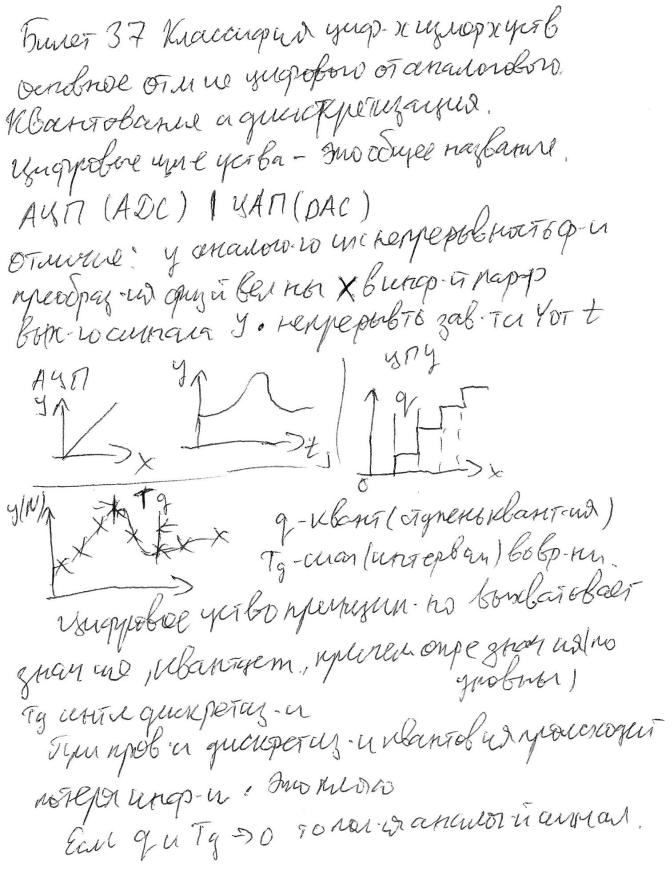 Билет 37 Классифия циф-х измор уств
основное отлие цифрового от аналогового.
Квантования а дискретизация.
Цифровые уства – это общее название.
АЦП (ADC) | ЦАП (DAC)
отличие: у аналого-го непрерывность ф-и
преобраз-ия физ-й вел ны X в инф-й пар-р
вых-го сигнала У. непрерывть зав-ти Y от t
АЦП
y
x
y
t
ЦПУ
q
0
x
y(N)
Tg
q - квант (ступень квант-ия)
Tg - (интервал) во вр-ни.
Цифровое уство принцип-но выхватывает
знач ие, квантует, причем опре знач ия (по
уровню)
Tg дискретиз-и
При пров-и дискретиз-и квантов ия происходит
потеря инф-и. Это плохо
Если q и Tg → 0 то пол-ия аналог-й сигнал.